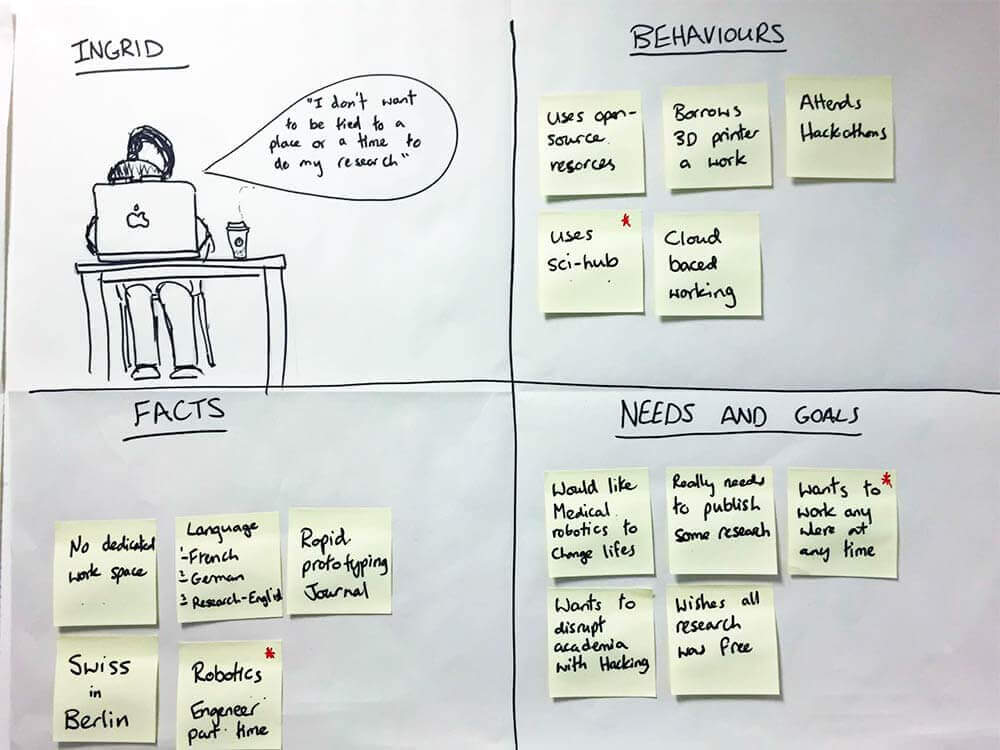 INGRID
"I don't want
to be tied to a
place or a time to
do my research"
BEHAVIOURS
Uses open-
source
resorces
Borrows
3D printer
a work
Attends
Hackathons
Uses *
sci-hub
Cloud
baced
working
FACTS
No dedicated
work space
Language
1-French
2-German
3-Research-English
Rapid
prototyping
Journal
Swiss
in
Berlin
*
Robotics
Engeneer
part time
NEEDS AND GOALS
Would like
Medical
robotics to
Change lifes
Really needs
to publish
some reseach
Wants to *
work any
where at
any time
Wants to
disrupt
academia
with Hacking
Wishes all
research
was free